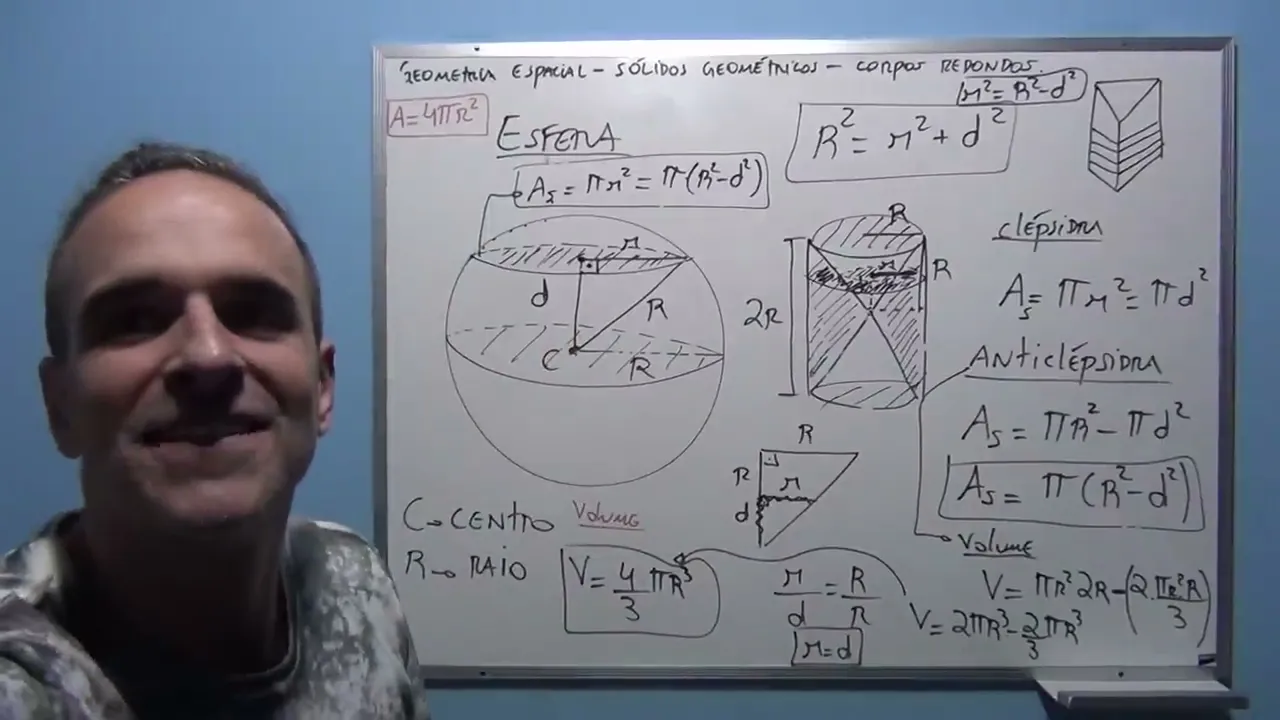 GEOMETRIA ESPACIAL - SÓLIDOS GEOMÉTRICOS - CORPOS REDONDOS.
r² = R² - d²
A = 4πR²
ESFERA
R² = r² + d²
As = πr² = π(R² - d²)
r
d
R
C
R
R
r
R
2R
clépsidra
As = πr² = πd²
Anticlépsidra
As = πR² - πd²
As = π(R² - d²)
R
R
r
d
C → CENTRO
R → RAIO
Volume
V = 4/3 πR³
r/d = R/R
r = d
Volume
V = πR² 2R - (2.πR².R/3)
V = 2πR³ - 2/3 πR³